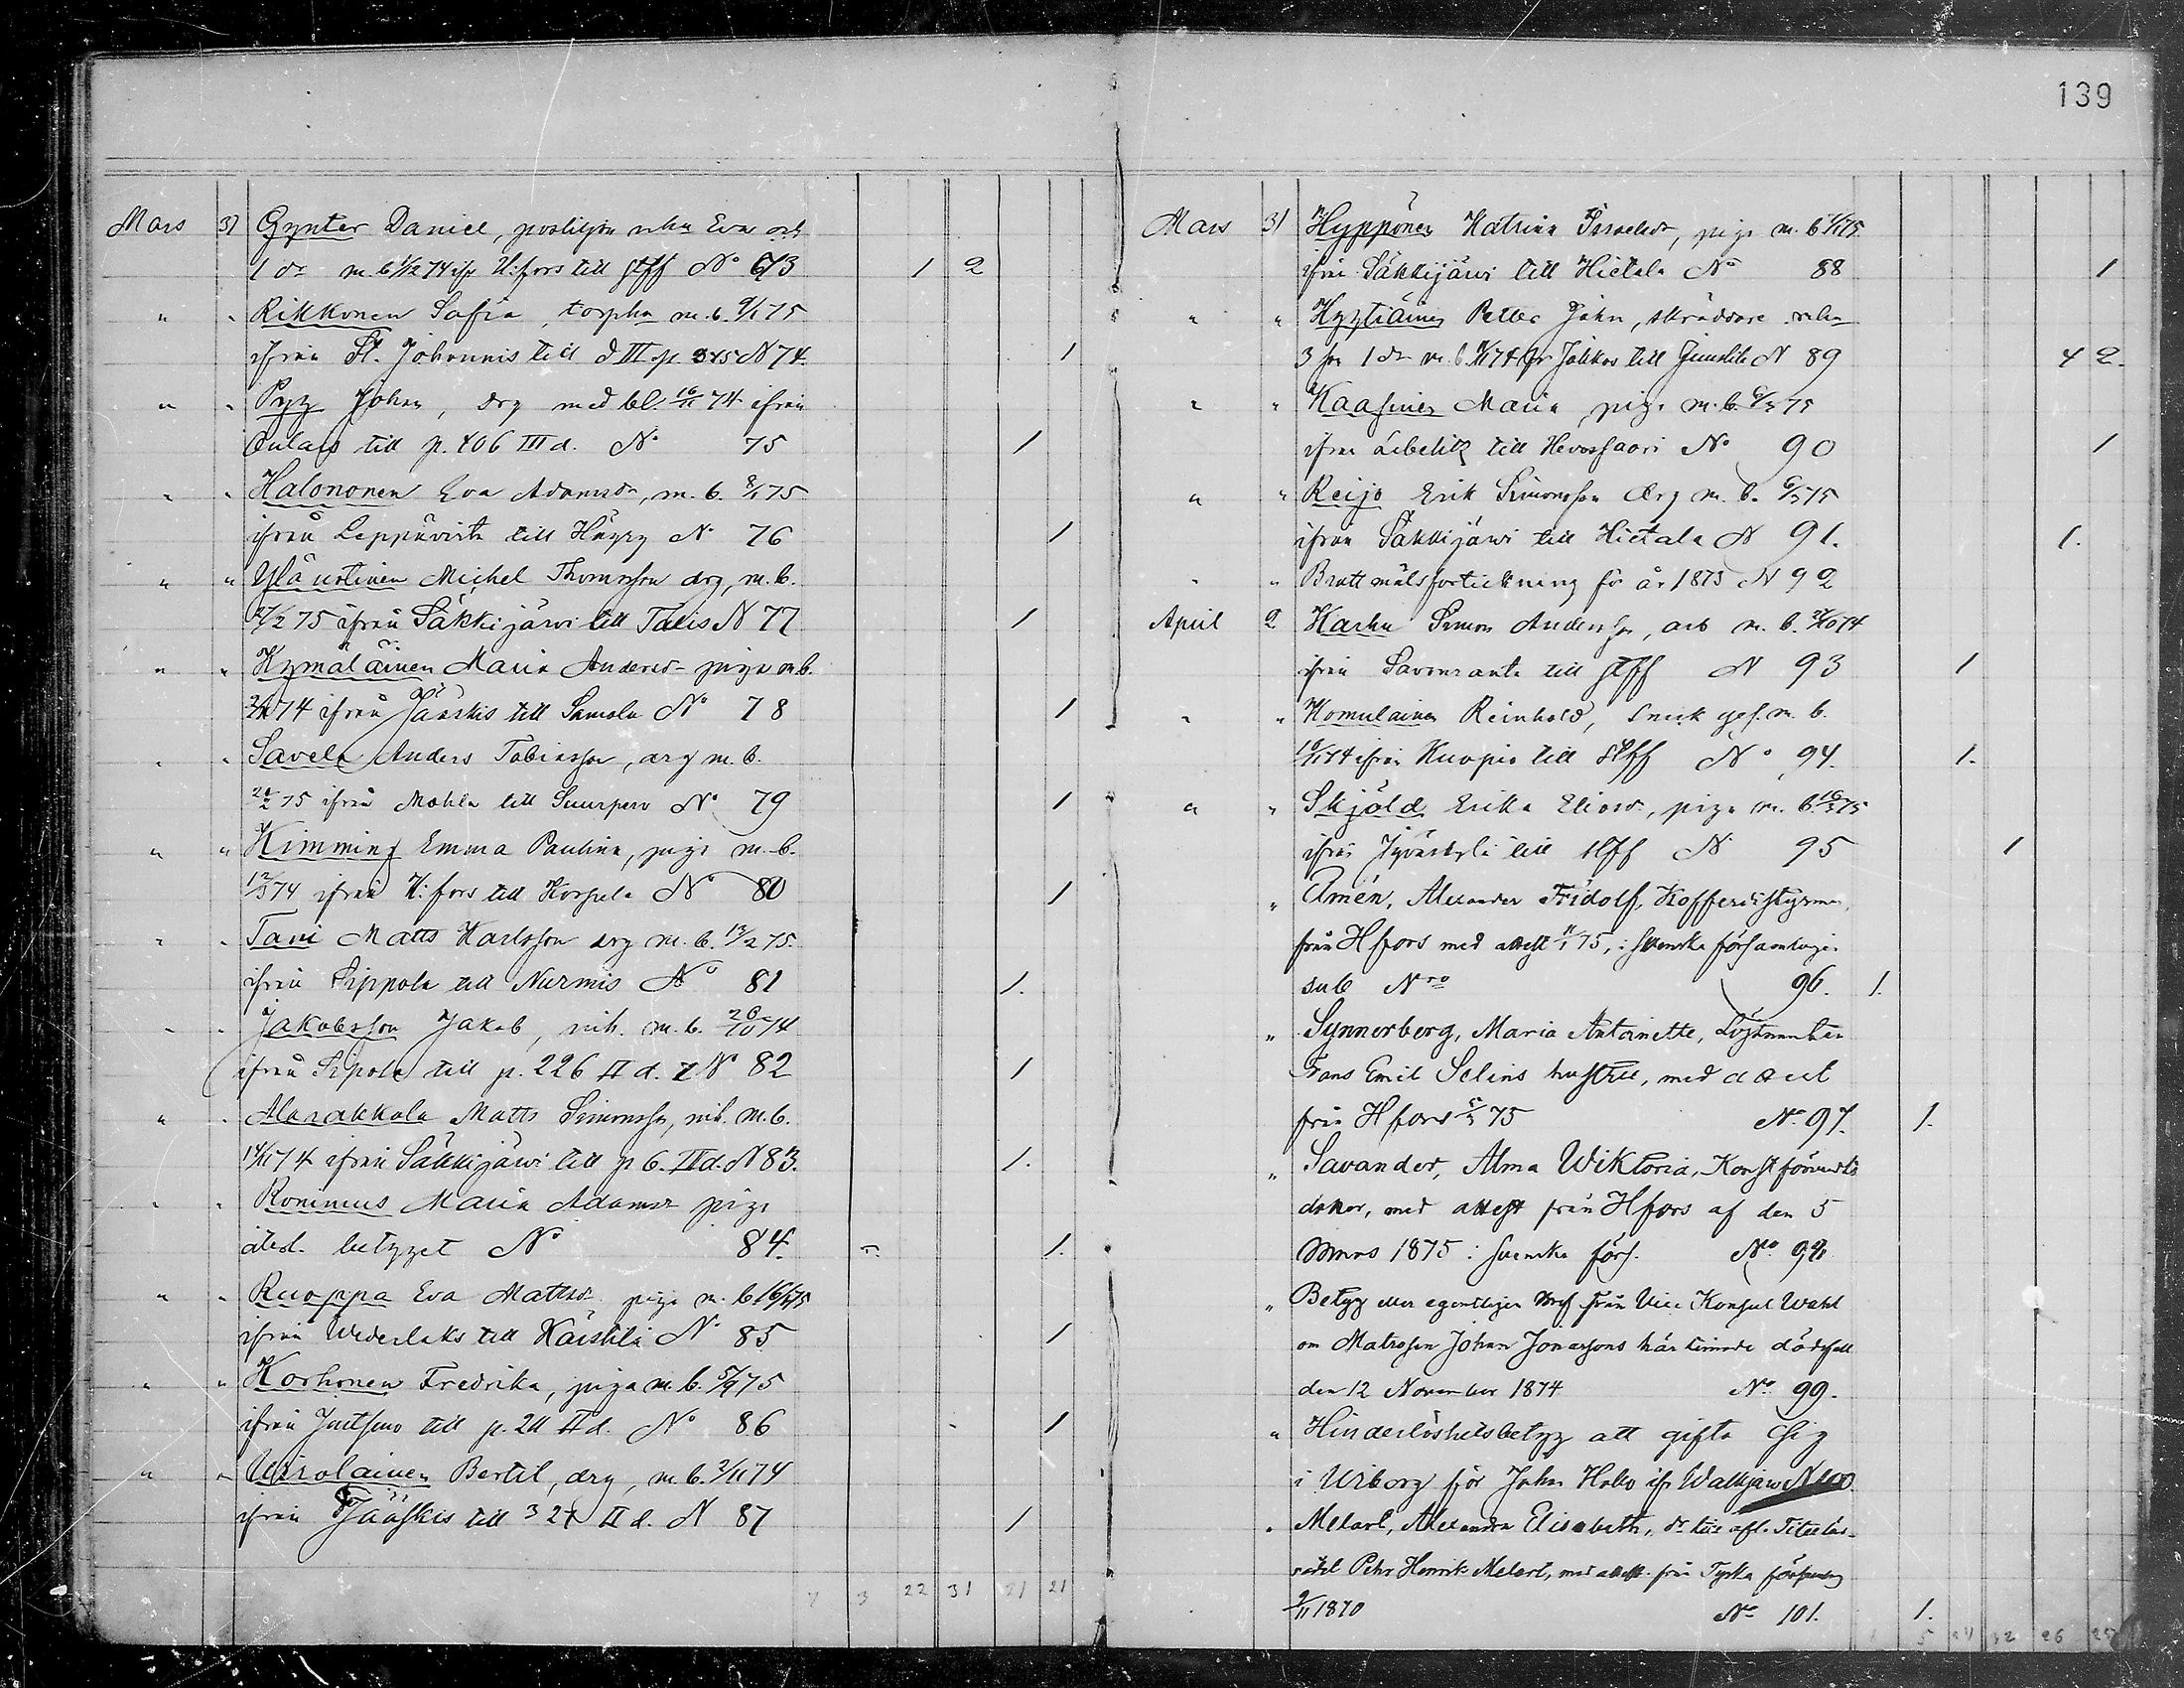 139
Mars 31 Gynter Daniel, postiljon m hu Eva och
1 dr m. b 1/12 74 ifr H:fors till Stff No 673 1 2
" " Rikkonen Sofia, torphu m. b. 9/1 75
ifrån St. Johannis till d III p. 345 N 74. 1
" " Pyy Johan, drg med bl. 16/11 74 ifrån
till p. 406 III d. No 75 1
" " Halononen Eva Adamsdr, m. b. 8/1 75
ifrån Leppävirta till Häyry No 76 1
" " Yläuotinen Michel Thomsson drg, m. b.
27/2 75 ifrån Säkkijärvi till Talis N 77 1
" " Kymäläinen Maria Andersdr piga m b.
74 ifrån Jääskis till Samola No 78 1
" " Savela Anders Tobiasson, drg m. b.
75 ifrån Mohla till Suurpero No 79 1
" " Kimming Emma Paulina, piga m. b.
12/3 74 ifrån H:fors till Korpela No 80 1
" " Tani Matts Karlsson drg m. b. 13/2 75.
ifrån Sippola till Nurmis No 81 1.
" " Jakobsson Jakob, inh. m. b. 26/10 74
ifrån Sipola till p. 226 II d. No 82 1
" " Alarakkola Matts Simonsson, inh. m. b.
14/11 74 ifrån Säkkijärvi till p 6. II d. N 83. 1.
" " Ronimus Maria Adamsdr piga
återl. betyget No 84. 1.
" " Ruoppa Eva Mattsdr. piga m. b 16/1 75
ifrån Wederlaks till Kärstilä No 85 1
" " Korhonen Fredrika, piga m. b. 75
ifrån Jäitseno till p. 211 II d. No 86 1
" " Wirolainen Bertil, drg, m. b. 2/11 74
ifrån Jääskis till 324 II d. N 87 1
7 3 22 31 21 21
Mars 31 Hyppönen Katrina Israelsdr, piga m. b 75
ifrån Säkkijärvi till Hietala No 88 1
" " Hyytiäinen Petter Johan, skräddare m hu
3 sr 1 dr m. b. 74 fr Jokkas till Juustila N 89 4 2.
" " Kaasinen Maria, piga m. b. 6/3 75
ifrån Libelitz till Hevossaari No 90 1
" " Reijo Erik Simonsson drg m. b. 6/3 75
ifrån Säkkijärvi till Hietala N 91. 1.
" " Brottmålsförteckning för år 1873 N 92
April 2 Karhu Simon Andersson, arb m. b. 74
ifrån Savonranta till Stff N 93 1
" " Komulainen Reinhold, snick ges. m. b.
74 ifrån Kuopio till Stff No 94. 1.
" " Skjöld Erika Eliasdr, piga m. b. 16/3 75
ifrån Jyväskylä till Stff N 95 1
" Amén, Alexander Fridolf, Kofferdistyrman,
från Hfors med attest 11/1 75, i svenska församlingen
sub Nro 96. 1.
" Synnerberg, Maria Antoinette, Löjtnanten
Frans Emil Selins hustru, med attest
från Hfors 75 No 97. 1.
" Savander, Alma Wiktoria, Konstförvandts
dotter, med attest från Hfors af den 5
Mars 1875 i svenska förs. No 98
" Betyg eller egentligen bref från Vice Konsul Wahl
om Matrosen Johan Jonassons här timade dödsfall
den 12 November 1874 No 99.
" Hinderlöshetsbetyg att gifta sig
i Wiborg för Johan Holko ifr Walkjärvi N 100
" Melart, Alexandra Elisabeth, dr till afl. Titulär-
rådet Pehr Henrik Melart, med attest från Tyska församling
9/11 1870 No 101. 1.
5 32 26 25